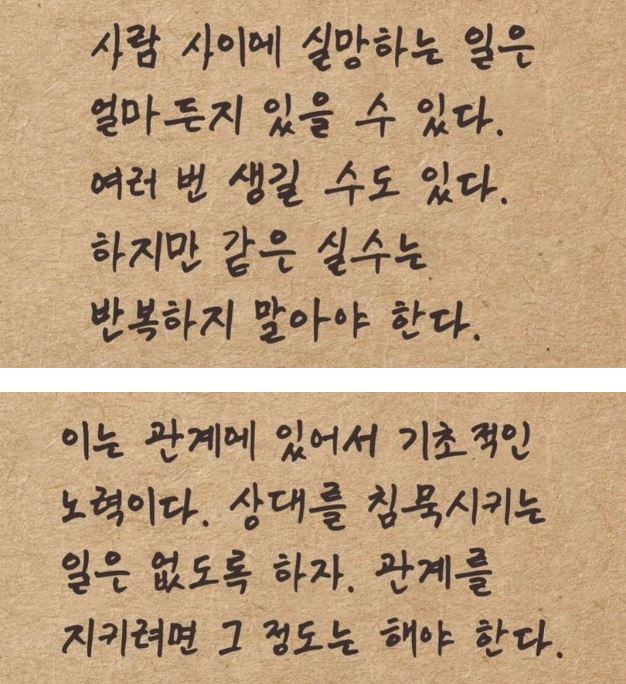 사람 사이에 실망하는 일은
얼마든지 있을 수 있다.
여러 번 생길 수도 있다.
하지만 같은 실수는
반복하지 말아야 한다.
이는 관계에 있어서 기초적인
노력이다. 상대를 침묵시키는
일은 없도록 하자. 관계를
지키려면 그 정도는 해야 한다.